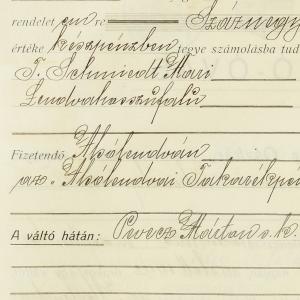 rendelet en re Száznegy
értéke készpénzben tegye számolásba tud
T. Schmiedt Mari
Lendvahosszufalu
Fizetendő Alsólendván
az Alsólendvai Takarékpé
A váltó hátán: Perecz Márton s. k.